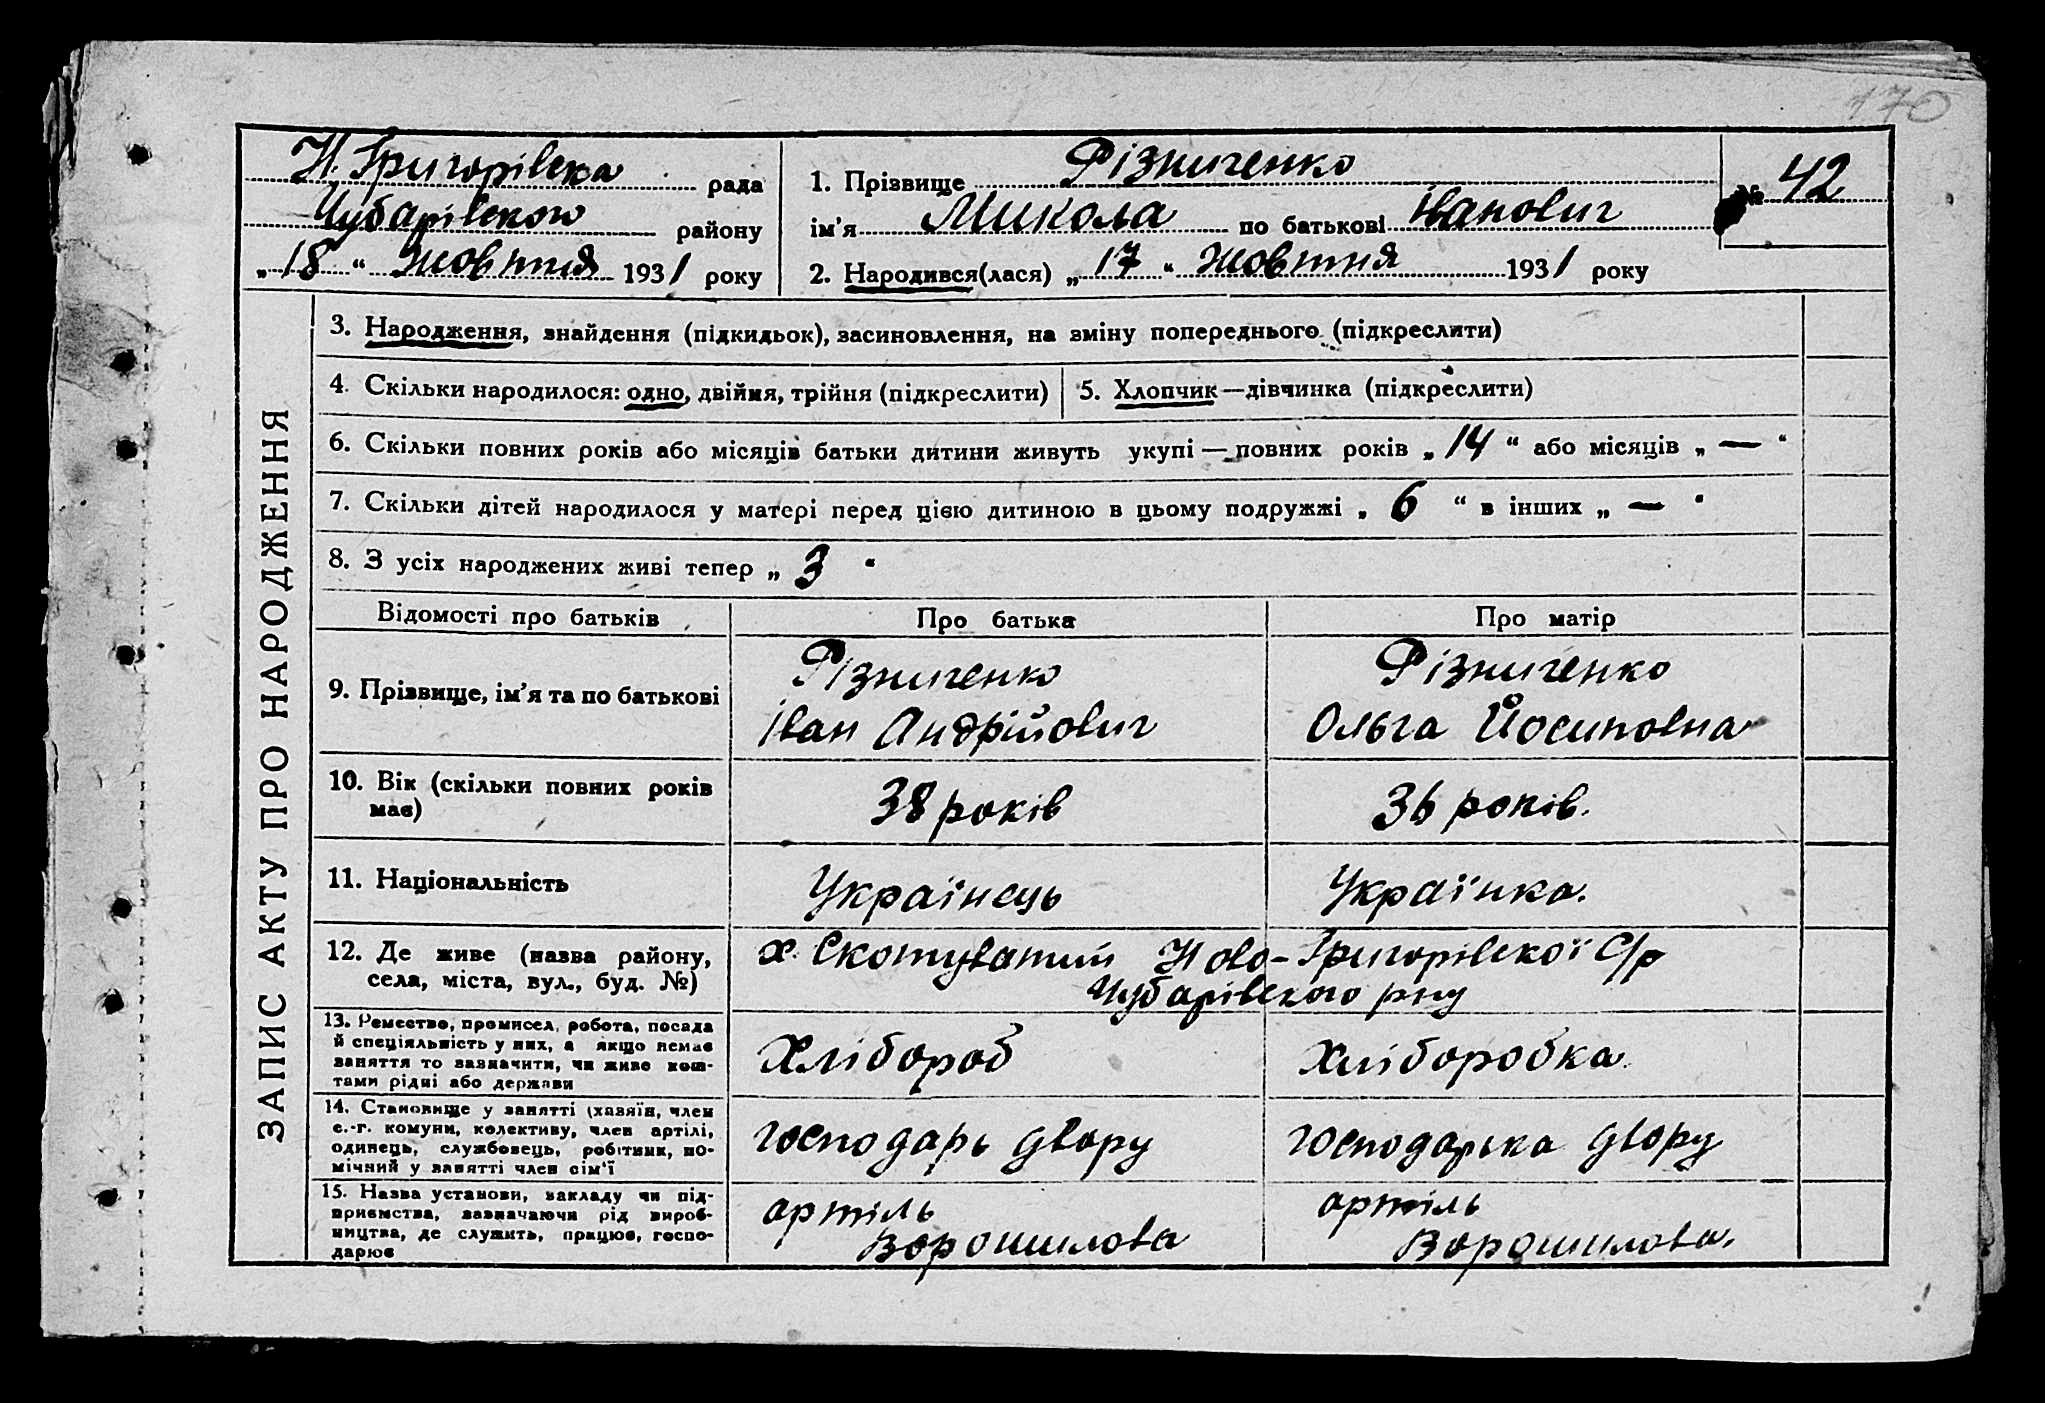 170
Н. Григорівска рада
Чубарівского району
„ 18 “ жовтня 1931 року
1. Прізвище Різниченко
№ 42
ім'я Микола по батькові Іванович
2. Народився(лася) „ 17 “ жовтня 1931 року
ЗАПИС АКТУ ПРО НАРОДЖЕННЯ
3. Народження, знайдення (підкидьок), засиновлення, на зміну попереднього (підкреслити)
4. Скільки народилося: одно, двійня, трійня (підкреслити)
5. Хлопчик—дівчинка (підкреслити)
6. Скільки повних років або місяців батьки дитини живуть укупі — повних років „ 14 “ або місяців „ — “
7. Скільки дітей народилося у матері перед цією дитиною в цьому подружжі „ 6 “ в інших „ — “
8. З усіх народжених живі тепер „ 3 “
Відомості про батьків
Про батька
Про матір
9. Прізвище, ім'я та по батькові
Різниченко
Іван Андрійович
Різниченко
Ольга Йосиповна
10. Вік (скільки повних років
має)
38 років
36 років.
11. Національність
Українець
Українка.
12. Де живе (назва району,
села, міста, вул., буд. №)
х. Скотуватий Ново-Григорівскої С/р
Чубарівского рну
13. Ремество, промисел, робота, посада
й спеціяльність у них, а якщо немає
заняття то зазначити, чи живе кош-
тами рідні або держави
Хлібороб
Хліборобка.
14. Становище у занятті (хазяїн, член
с.-г. комуни, колективу, член артілі,
одинець, службовець, робітник, по-
мічний у занятті член сім'ї
господарь двору
господарка двору
15. Назва установи, закладу чи під-
приємства, зазначаючи рід вироб-
ництва, де служить, працює, госпо-
дарює
артіль
Ворошилова
артіль
Ворошилова.